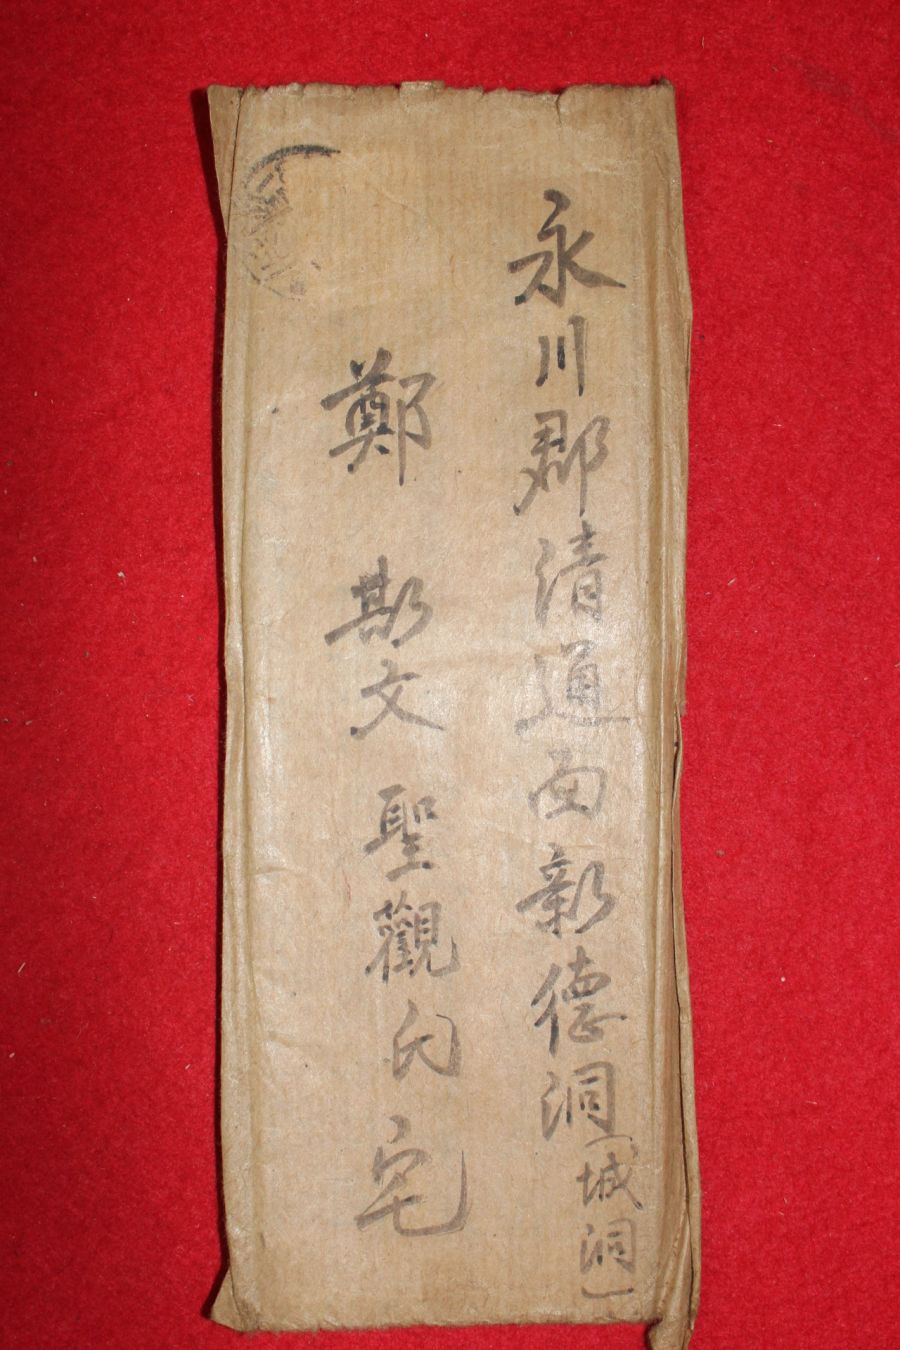 永川郡清通面新德洞（城洞）
鄭 斯文 聖觀氏宅